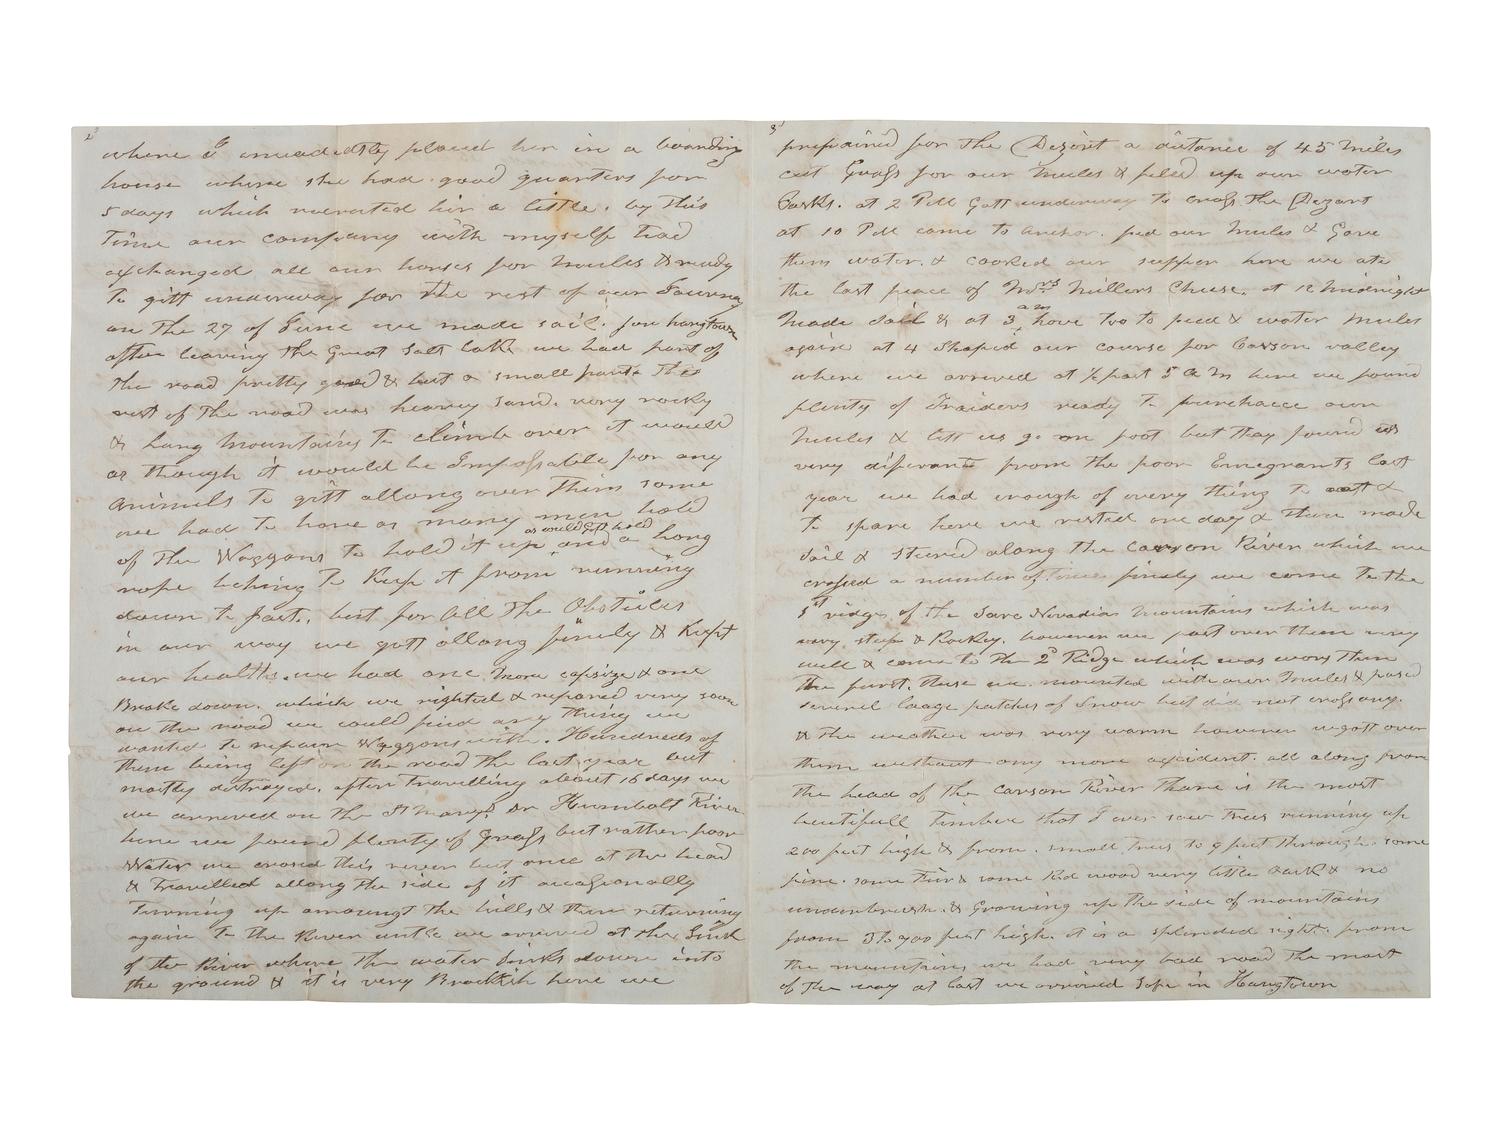 2
where I imeadedtly placed her in a boarding
house where she had good quarters for
5 days which recruited hir a little. by this
time our company with myself had
exchanged all our horses for Mules & ready
to gitt underway for the rest of our Journey
on the 27 of June we made sail. for hangtown
after leaving the Great Salt Lake we had part of
the road pretty good & but a small part. the
rest of the road was heavey sand. very rocky
& Long Mountains to climb over it would
as though it would be Impossable for any
animels to gitt allong over them some
we had to have as many men hold
as could gett hold
of the Waggons to hold it up and a long
rope behing to Keep it from running
down to fast. but for all the Obsticles
in our way we gott allong finely & Kept
our healths. we had one more capsize & one
Broke down. which we righted & repared very soon
on the road we could find any thing we
wanted to repare Waggons with. Hundreds of
them being left on the road the last year but
mostly distroyed. after travelling about 16 days we
we arreved on the St Marys or Humbolt River
here we found plenty of Grass but rather poor
Water we crosed this river but once at the head
& Travelled allong the side of it occasionally
turning up amoungt the hills & then returning
again to the River untle we arrived at the Sink
of the River where the water sinks down into
the ground & it is very Brackish here we
3
prepaired for the Dezert a distance of 45 Miles
cut Grass for our Mules & filled up our water
Casks. at 2 PM Gott underway to cross the Dezart
at 10 PM came to anchor. fed our Mules & Gave
them water. & cooked our supper here we ate
the last peace of Mrs Millers Cheese. at 12 Midnight
am
Made Sail & at 3 hove too to feed & water Mules
again at 4 Shaped our course for Carson valley
where we arrived at ½ past 5 a M here we found
plenty of Traiders ready to purchacce our
Mules & lett us go on foot but they found us
very diferant from the poor Emegrants last
year we had enough of every thing to eatt &
to spare here we rested one day & then made
Sail & steered along the Carson River which we
crossed a number of times finely we come to the
1st ridge of the Sare Nevadias Mountains which was
very steep & Rockey. however we past over them very
well & come to the 2d Ridge which was wors then
the furst. these we mounted with our Mules & pased
severel laage patches of Snow but did not cross any.
& the weather was very warm however we gott over
them without any more axident. all along from
the head of the Carson River thare is the most
beutifull Timber that I ever saw trees running up
200 feet high & from small trees to 9 feet through. some
pine. some Fur & some Red wood very little oark & no
underbrush. & Growing up the side of mountains
from 3 to 900 feet high. it is a splended sight. from
the mountains we had very bad road the most
of the way at last we arrived safe in Hangtown